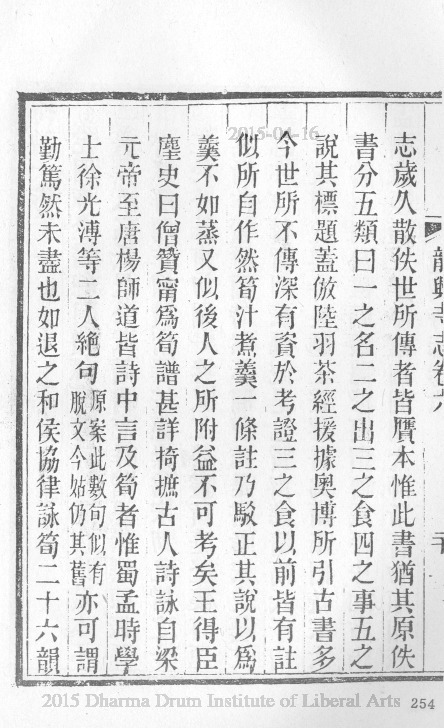 志歲久散佚世所傳者皆贗本惟此書猶其原佚
書分五類曰一之名二之出三之食四之事五之
說其標題蓋倣陸羽茶經援據奧博所引古書多
今世所不傳深有資於考證三之食以前皆有註
似所自作然筍汁煮羹一條註乃駁正其說以爲
羹不如蒸又似後人之所附益不可考矣王得臣
麈史曰僧贊甯爲筍譜甚詳掎摭古人詩詠自梁
元帝至唐楊師道皆詩中言及筍者惟蜀孟時學
士徐光溥等二人絕句原案此數句似有脫文今姑仍其舊亦可謂
勤篤然未盡也如退之和侯協律詠筍二十六韻
2015-04-16
2015 Dharma Drum Institute of Liberal Arts
254